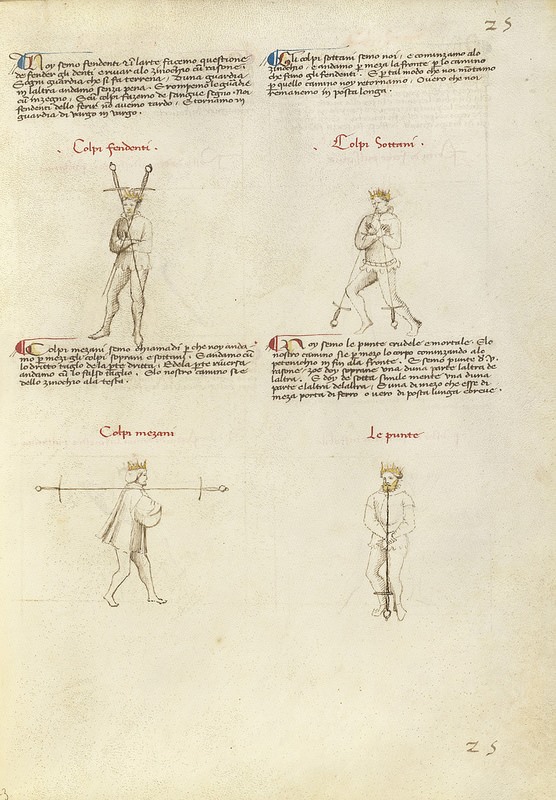 25
Noy semo fendenti e in l'arte façemo questione
de fender gli denti e rivar alo zinochio cum rasone.
Ogni guardia che si fa terrena, d'una guardia
in l'altra andamo senza pena. E rompemo le guardie
cum inzegno, E cum colpi fazemo de sangue segno. Noi
fendenti dello ferir non avemo tardo, E tornamo in
guardia di vargo in vargo.
Colpi fendenti.
Gli colpi sottani semo noi, e cominzamo alo
zinochio, e andamo per meza la fronte per lo camino
che fano gli fendenti. E per tal modo che noi montamo
per quello camino noy retornamo, Overo che noi
remanemo in posta longa.
Colpi Sottani.
Colpi mezani semo chiamadi perche noy anda-
mo per mezi gli colpi soprani e sottani. E andamo cum
lo dritto taglo de la parte dritta, E de la parte riversa
andamo cum lo falso taglio. E lo nostro camino si e
dello zinochio ala testa.
Colpi mezani
Noy semo le punte crudele e mortale. E lo
nostro camino si e per mezo lo corpo cominzando alo
petenichio infin ala fronte. E semo punte d. v.
rasone zoe doy soprane una d'una parte l'altra de
l'altra. E doy de sotta simile mente una d'una
parte e l'altra de l'altra, E una di mezo che esse di
meza porta di ferro o vero di posta lunga e breve.
Le punte
25